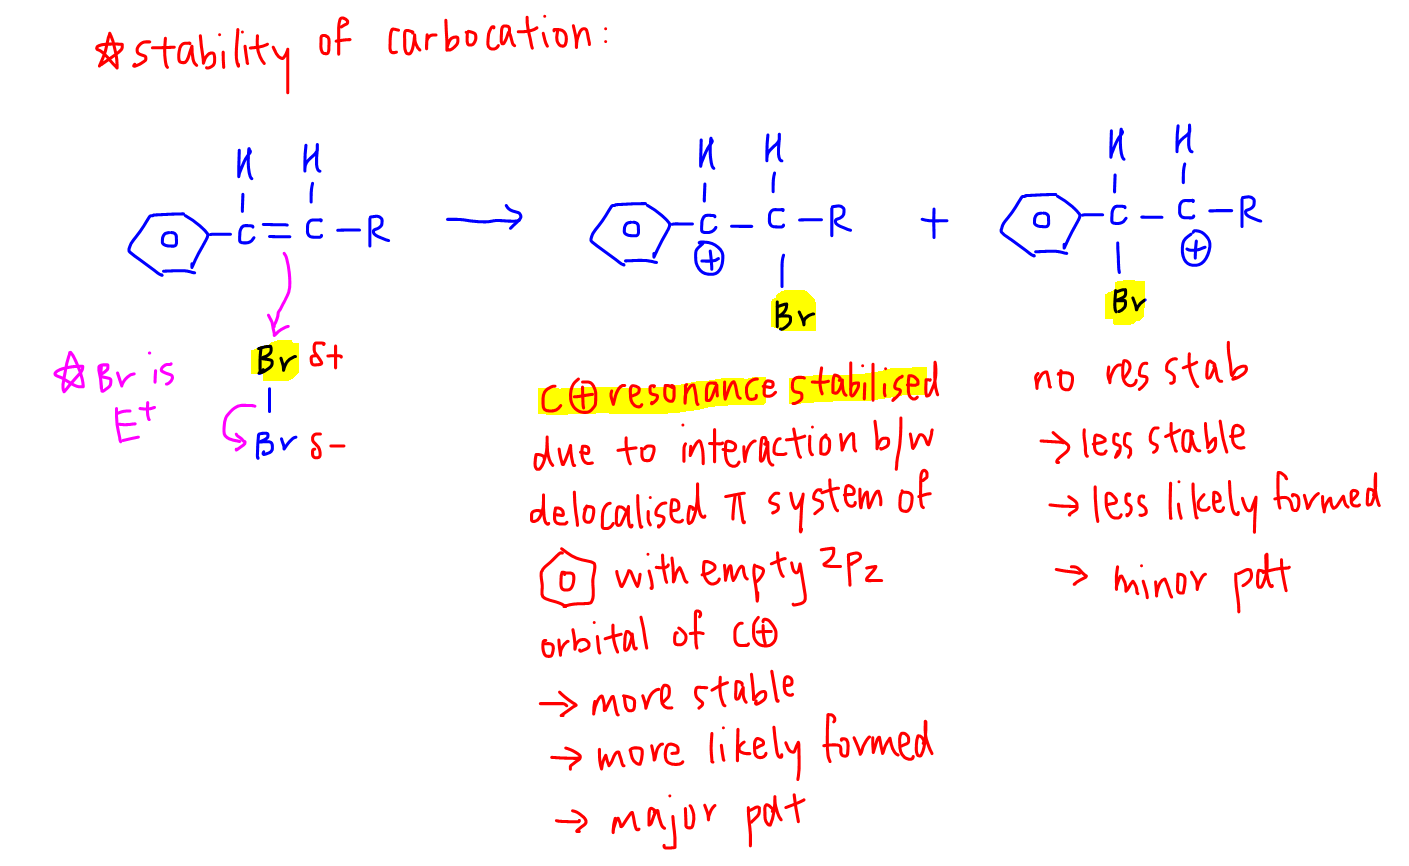 ☆ stability of carbocation:
H H
C = C – R
→
H H
C – C – R
⊕
Br
+
H H
C – C – R
⊕
Br
Br δ+
Br δ-
☆ Br is
E+
C⊕ resonance stabilised
due to interaction b/w
delocalised π system of
with empty 2Pz
orbital of C⊕
→ more stable
→ more likely formed
→ major pdt
no res stab
→ less stable
→ less likely formed
→ minor pdt